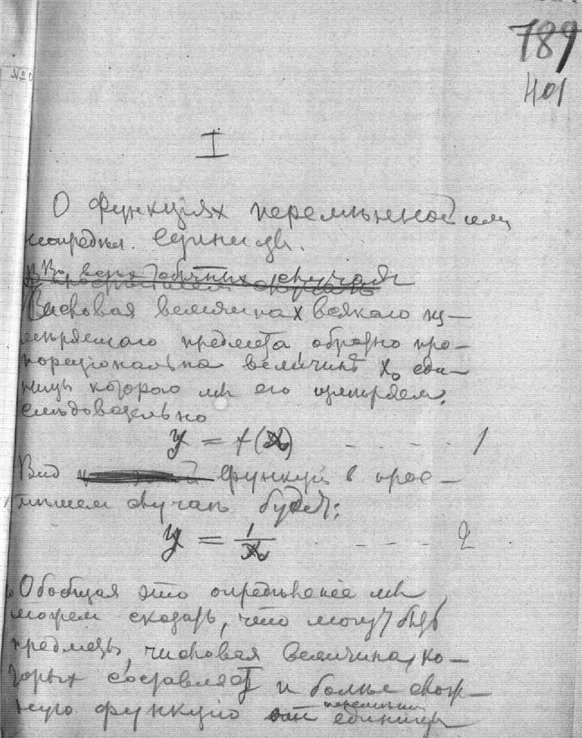 789
401
№
I
О функціях переменной или
неопредѣл. единицы.
Во всех обычных случаях
Числовая величина X всякаго из-
меряемаго предмета обратно про-
порціональна величинѣ X₀ еди-
ницы которою мы его измеряем,
слѣдовательно
y = f(x) - - - - 1
Вид функціи в прос-
тѣйшем случаѣ будет:
y = 1/x - - - - 2
Обобщая это определение мы
можем сказать, что могут быть
предметы, числовая величина ко-
торых составляет и более слож-
ную функцію переменной единицы